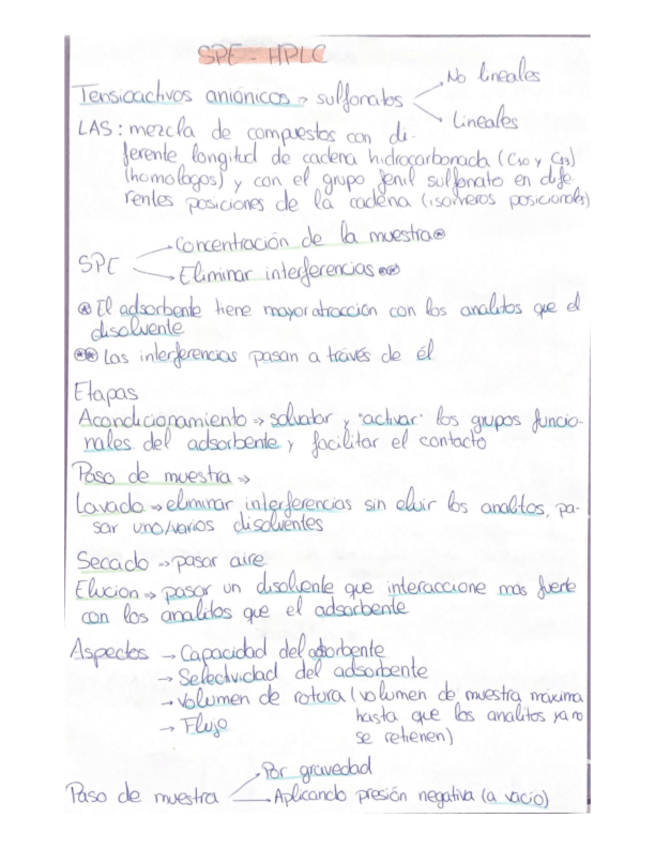 SPE - HPLC
Tensioactivos aniónicos → sulfonatos
No lineales
Lineales
LAS: mezcla de compuestos con di-
ferente longitud de cadena hidrocarbonada (C10 y C13)
(homólogos) y con el grupo fenil sulfonato en dife-
rentes posiciones de la cadena (isómeros posicionales)
SPE
Concentración de la muestra⊛
Eliminar interferencias ⊛⊛
⊛ El adsorbente tiene mayor atracción con los analitos que el
disolvente
⊛⊛ Las interferencias pasan a través de él
Etapas
Acondicionamiento → solvatar y "activar" los grupos funcio-
nales del adsorbente y facilitar el contacto
Paso de muestra →
Lavado → eliminar interferencias sin eluir los analitos, pa-
sar uno/varios disolventes
Secado → pasar aire
Elución → pasar un disolvente que interaccione más fuerte
con los analitos que el adsorbente
Aspectos → Capacidad del adsorbente
→ Selectividad del adsorbente
→ Volumen de rotura (volumen de muestra máxima
hasta que los analitos ya no
se retienen)
→ Flujo
Paso de muestra
Por gravedad
Aplicando presión negativa (a vacío)